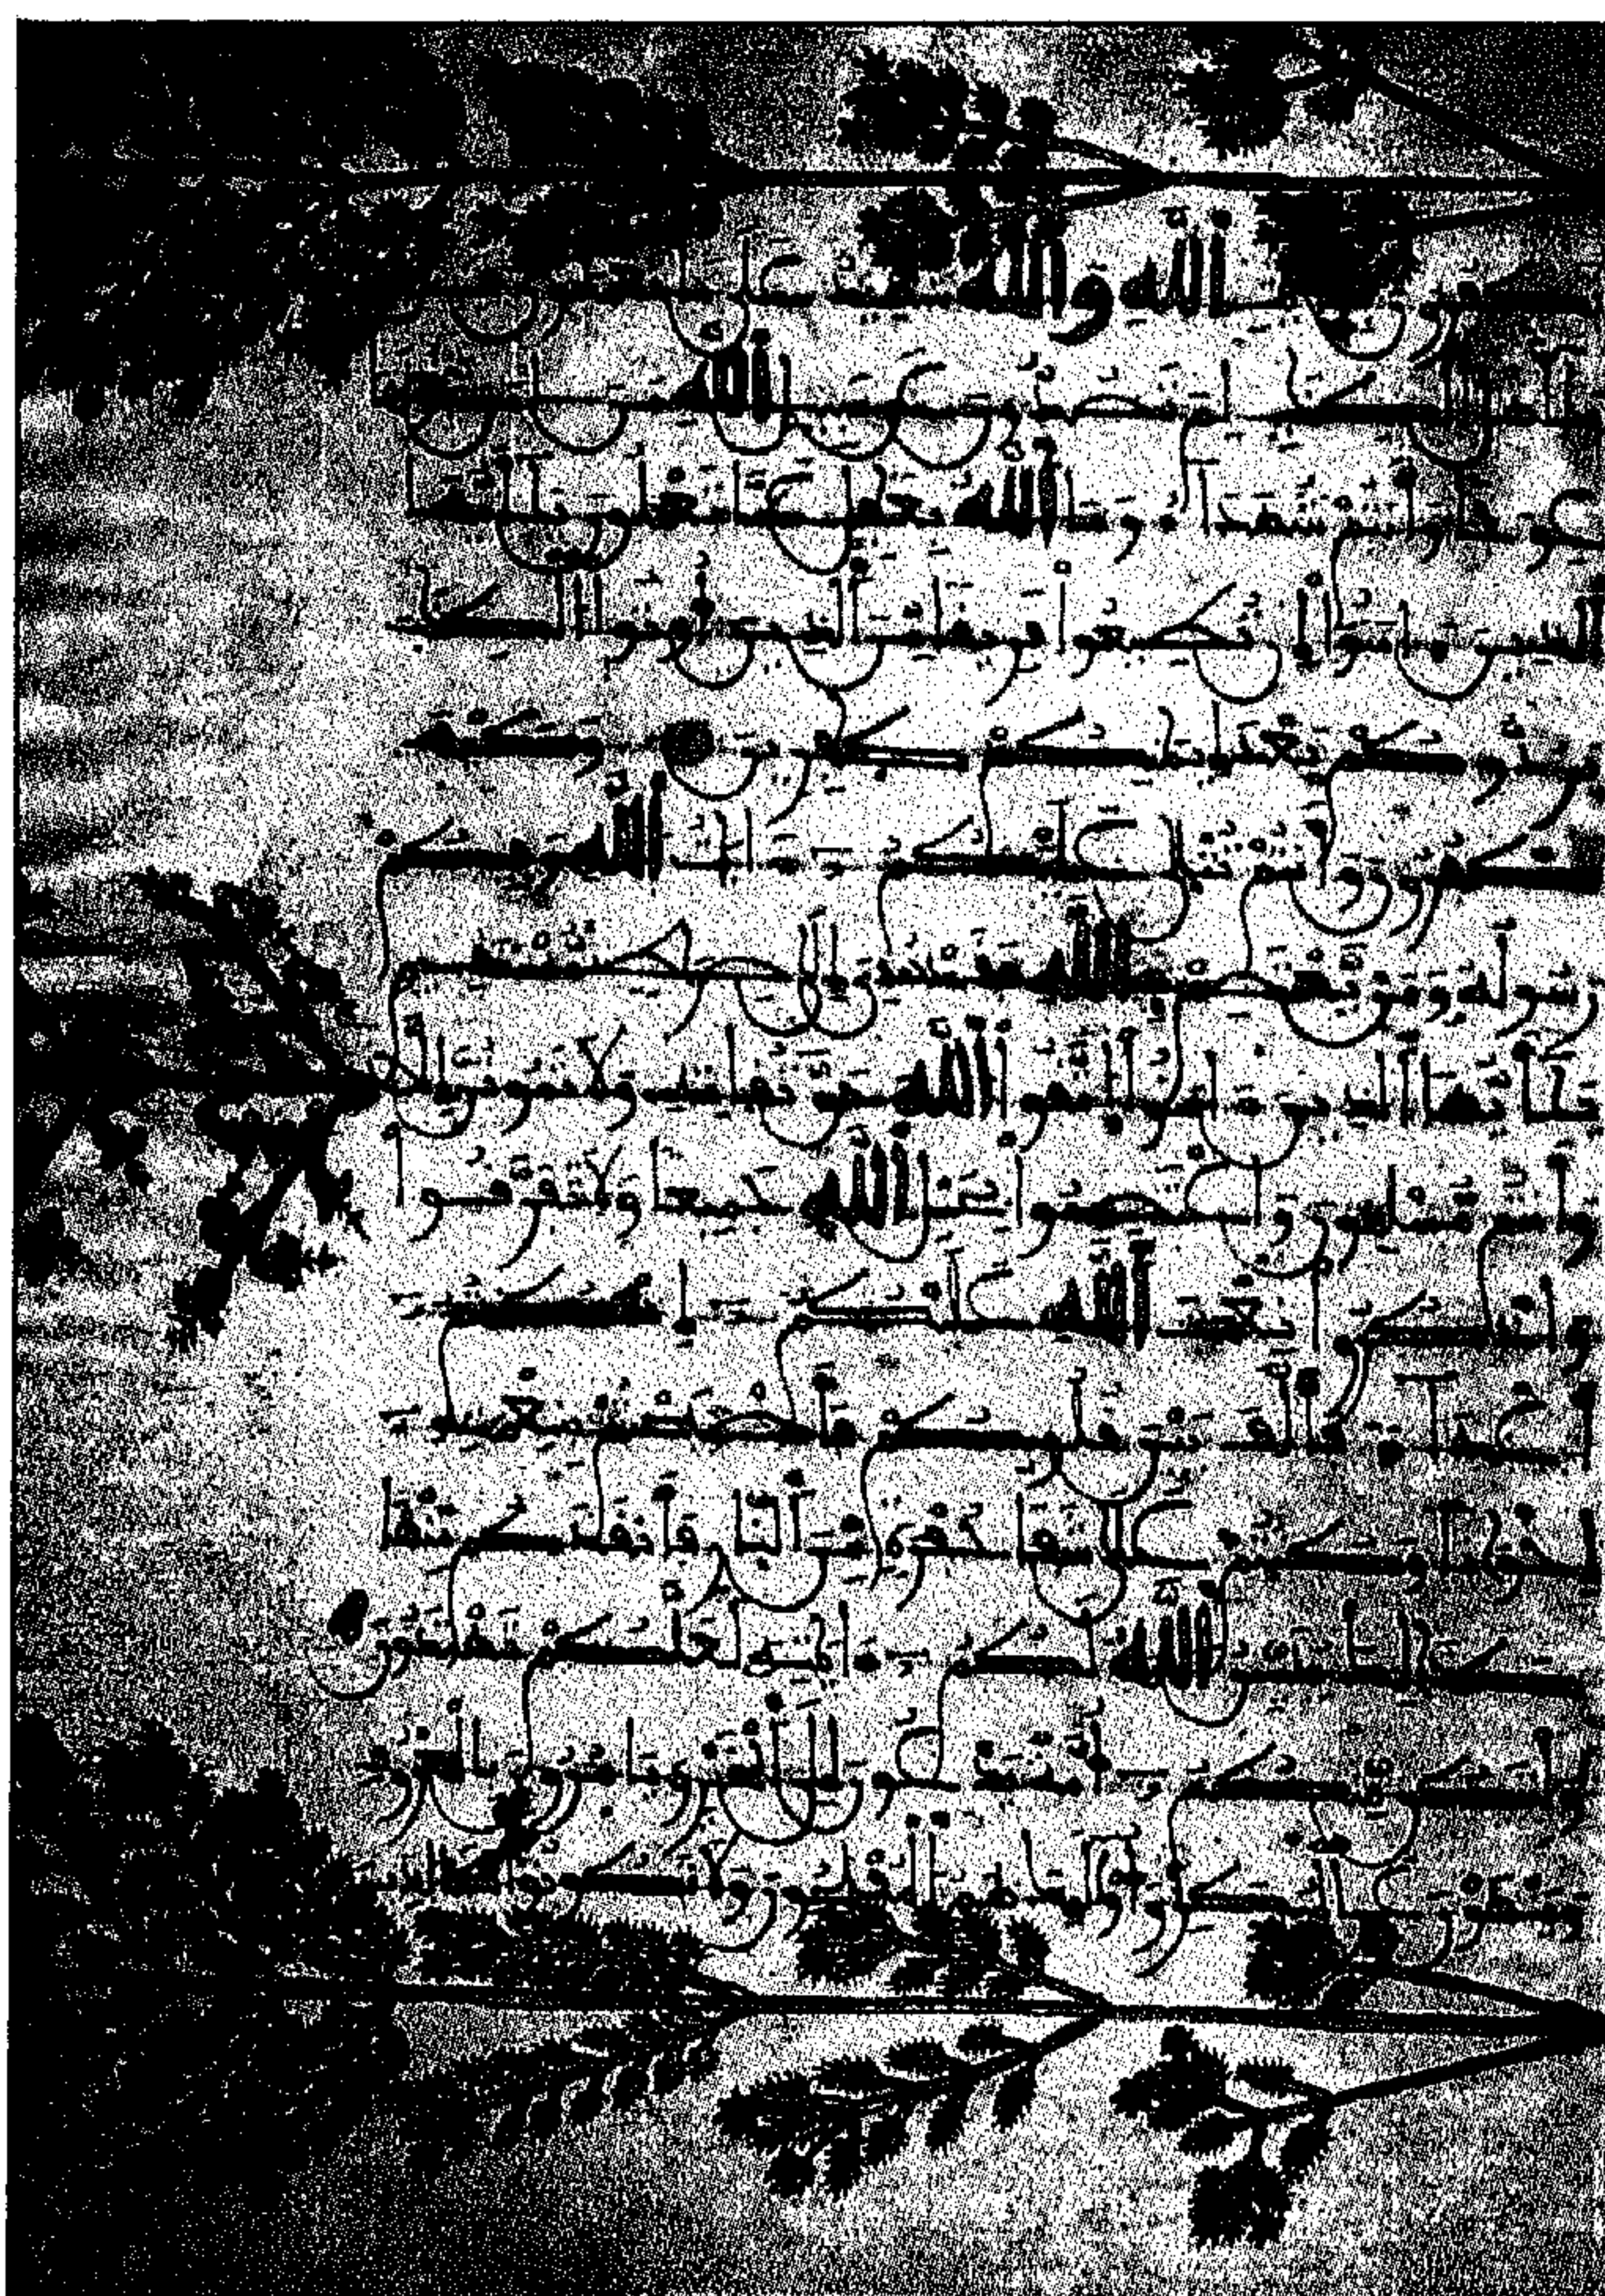 الله والله شهيد على ما تعملون
يأهل الكتب لم تصدون عن سبيل الله من ءامن
عوجا وأنتم شهداء وما الله بغفل عما تعملون يأيها
الذين ءامنوا إن تطيعوا فريقا من الذين أوتوا الكتب
يردوكم بعد إيمنكم كفرين وكيف
تكفرون وأنتم تتلى عليكم ءايت الله وفيكم
رسوله ومن يعتصم بالله فقد هدي إلى صرط مستقيم
يأيها الذين ءامنوا اتقوا الله حق تقاته ولا تموتن إلا
وأنتم مسلمون واعتصموا بحبل الله جميعا ولا تفرقوا
واذكروا نعمت الله عليكم إذ كنتم
أعداء فألف بين قلوبكم فأصبحتم بنعمته
إخونا وكنتم على شفا حفرة من النار فأنقذكم منها
كذلك يبين الله لكم ءايته لعلكم تهتدون
ولتكن منكم أمة يدعون إلى الخير ويأمرون بالمعروف
وينهون عن المنكر وأولئك هم المفلحون ولا تكونوا كالذين